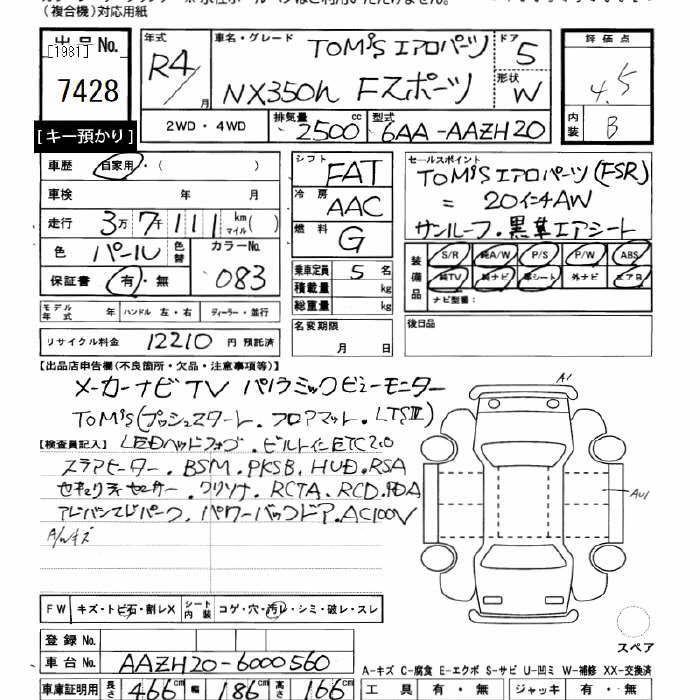 （複合機）対応用紙
出品No.
[1981]
7428
[キー預かり]
年式
R4/
月
車名・グレード
TOM'S エアロパーツ
NX350h Fスポーツ
ドア
5
形状
W
評価点
4.5
内装
B
2WD・4WD
排気量
2500cc
型式
6AA-AAZH20
車歴
自家用・（　　）
車検　年　月
走行
3万7千111
km
マイル
(　)
色
パール
色替
カラーNo.
083
保証書
有・無
モデル年式　年
ハンドル 左・右
ディーラー・並行
リサイクル料金
12210
円 預託済
シフト
FAT
冷房
AAC
燃料
G
乗車定員 5名
積載量 kg
総重量 kg
名変期限
月　日
セールスポイント
TOM'S エアロパーツ(FSR)
= 20インチAW
サンルーフ・黒革エアシート
装備品
S/R 純A/W P/S P/W ABS
純TV 純ナビ 革シート 外ナビ エアロ
ナビ型番：
後日品
【出品店申告欄(不良箇所・欠品・注意事項等)】
メーカーナビTV パノラミックビューモニター
TOM'S(プッシュスタート・フロアマット・LTSⅢ)
【検査員記入】
LEDヘッドフォグ・ビルトインETC2.0
ステアヒーター・BSM・PKSB・HUD・RSA
セキュリティセンサー・クリソナ・RCTA・RCD・PDA
アドバンスドパーク・パワーバックドア・AC100V
A/wキズ
A1
AU1
FW
キズ・トビ石・割レX
シート内装
コゲ・穴・汚レ・シミ・破レ・スレ
スペア
登録No.
車台No.
AAZH20-6000560
A-キズ C-腐食 E-エクボ S-サビ U-凹ミ W-補修 XX-交換済
車庫証明用
長さ
466cm
幅
186cm
高さ
166cm
工具 有・無
ジャッキ 有・無